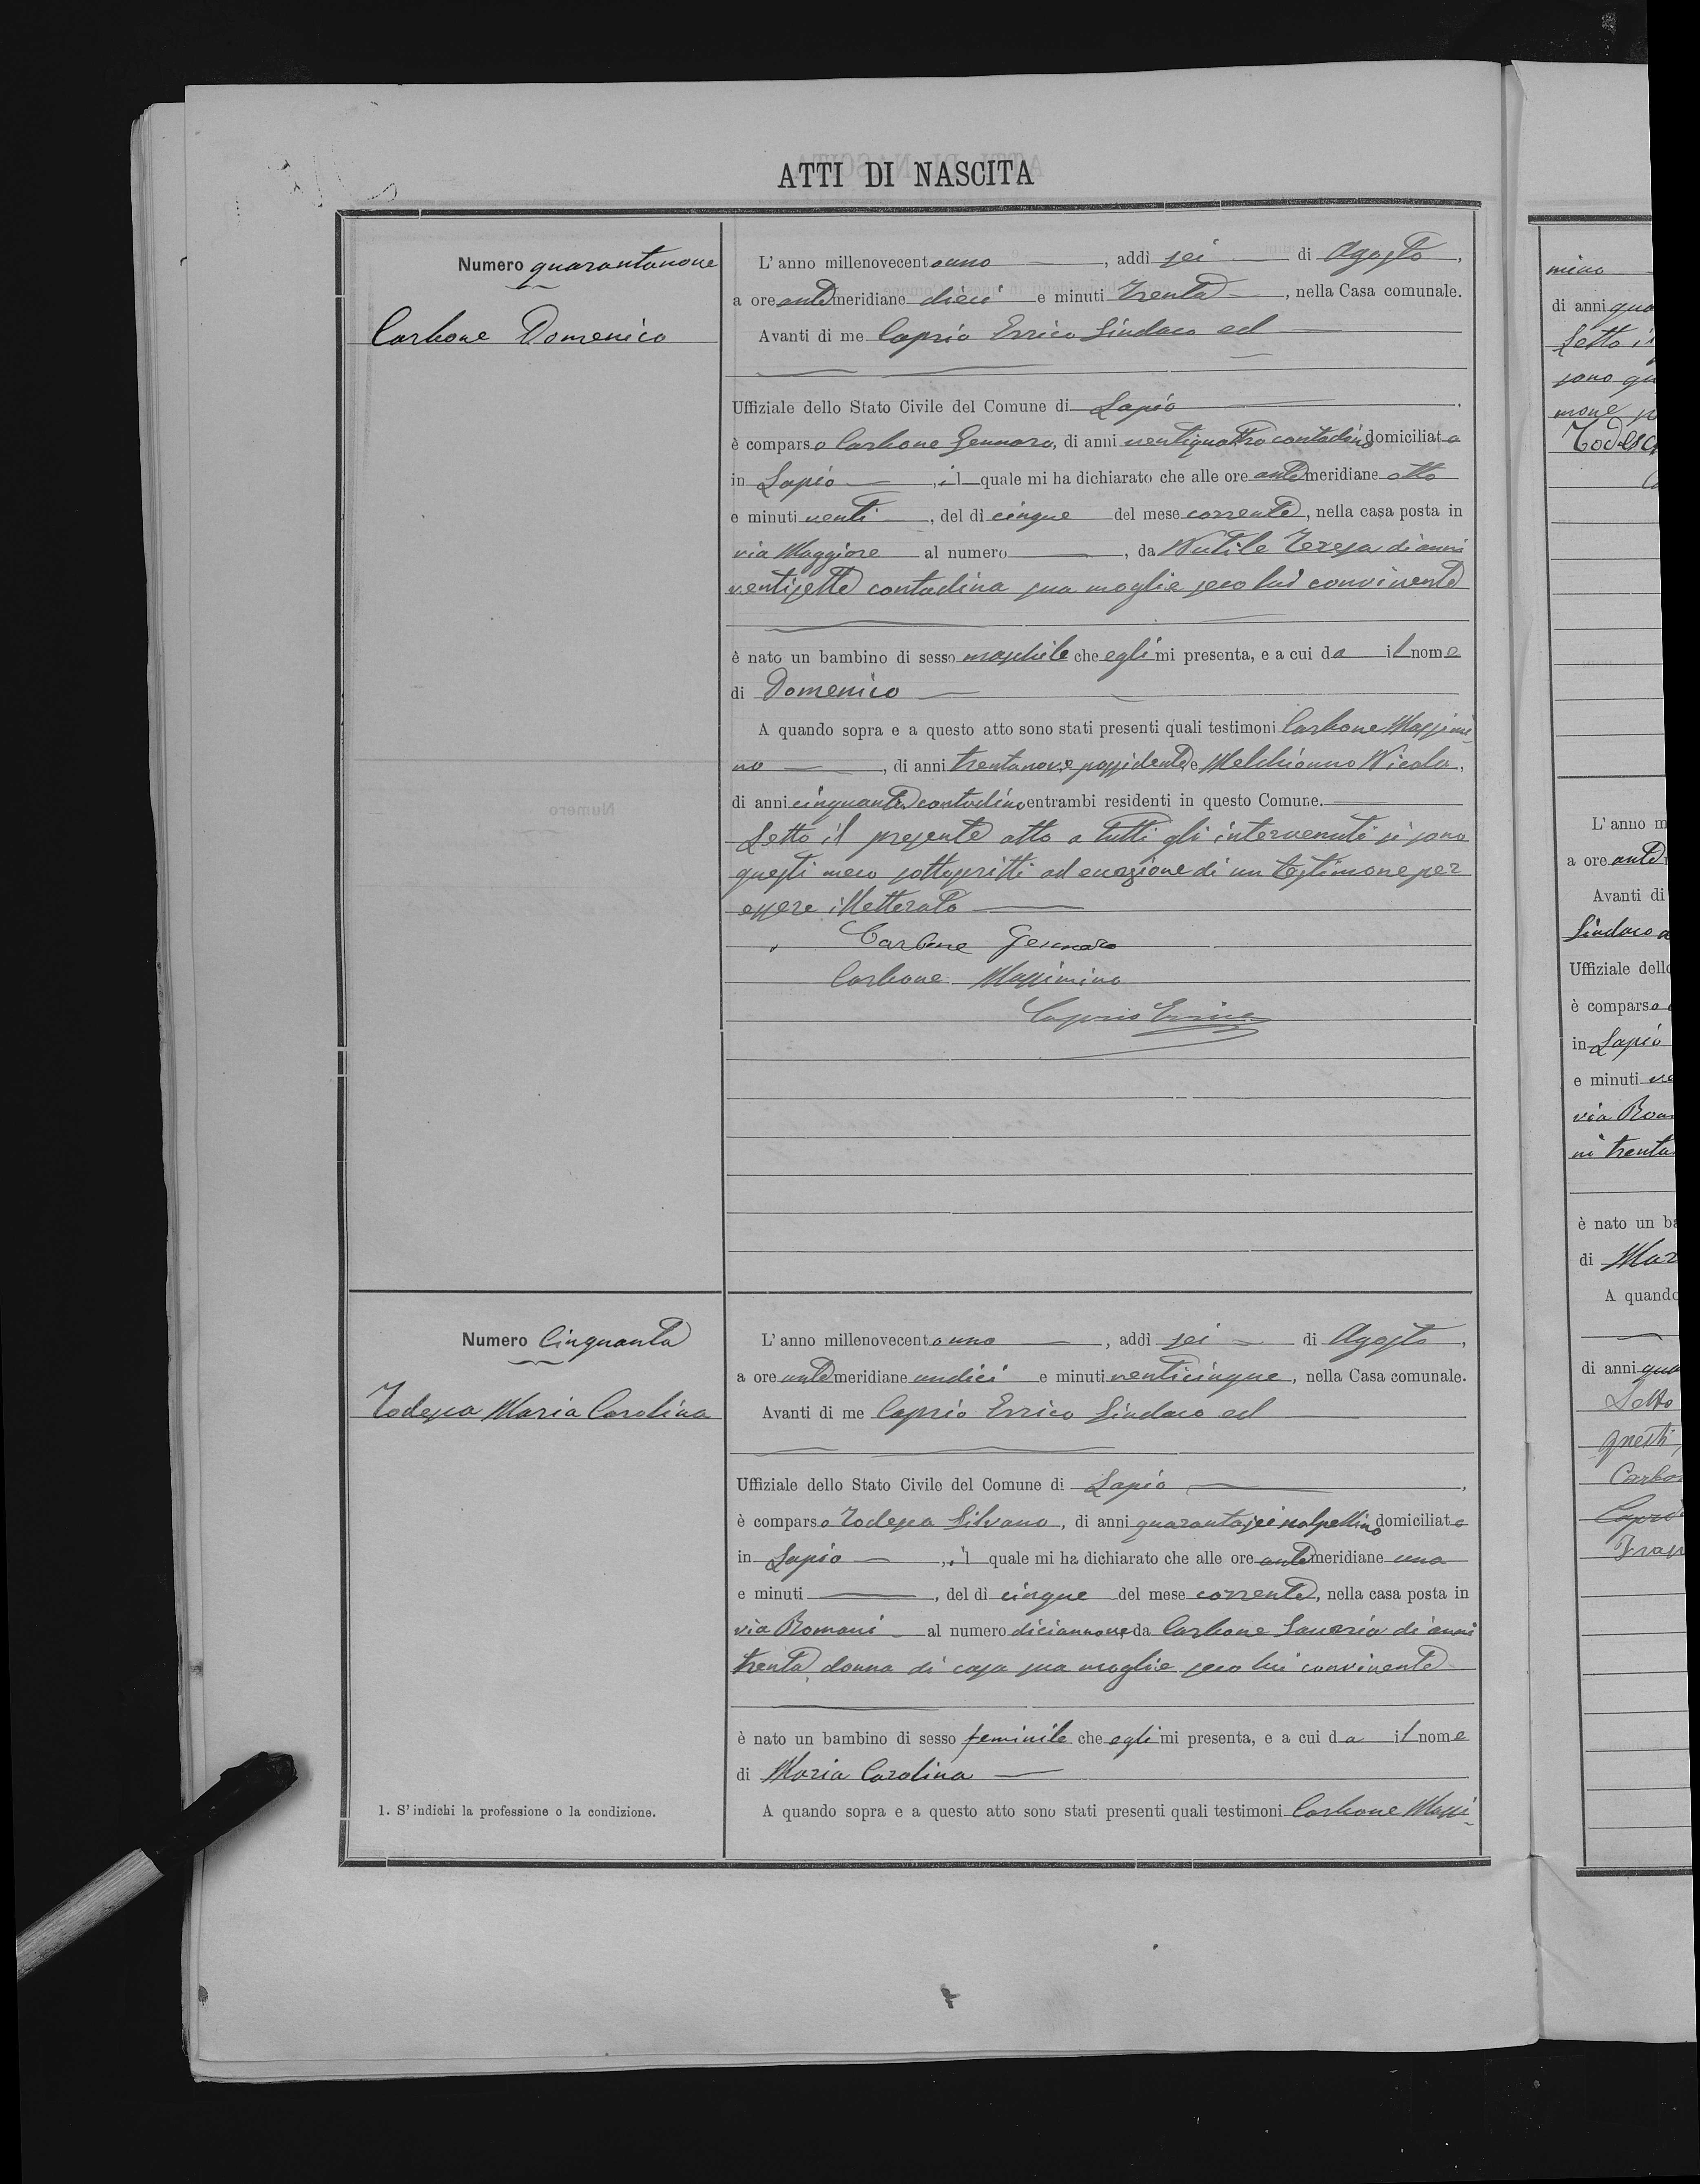 ATTI DI NASCITA
Numero quarantanove
Carbone Domenico
L'anno millenovecentouno, addì sei di Agosto,
a ore antemeridiane dieci e minuti trenta, nella Casa comunale.
Avanti di me Caprio Errico Sindaco ed
Uffiziale dello Stato Civile del Comune di Lapio.
è comparso Carbone Gennaro, di anni ventiquattro contadino domiciliato
in Lapio, il quale mi ha dichiarato che alle ore antemeridiane otto
e minuti venti, del dì cinque del mese corrente, nella casa posta in
via Maggiore al numero, da Nutile Teresa di anni
ventisette contadina sua moglie seco lui convivente
è nato un bambino di sesso maschile che egli mi presenta, e a cui da il nome
di Domenico
A quando sopra e a questo atto sono stati presenti quali testimoni Carbone Massimi-
no, di anni trentanove possidente e Melchionno Nicola,
di anni cinquanta contadino entrambi residenti in questo Comune.
Letto il presente atto a tutti gli intervenuti si sono
questi meco sottoscritti ad eccezione di un testimone per
essere illetterato
Carbone Gennaro
Carbone Massimino
Caprio Errico
Numero Cinquanta
Todesca Maria Carolina
L'anno millenovecentouno, addì sei di Agosto,
a ore antemeridiane undici e minuti venticinque, nella Casa comunale.
Avanti di me Caprio Errico Sindaco ed
Uffiziale dello Stato Civile del Comune di Lapio,
è comparso Todesca Silvano, di anni quarantasei scalpellino domiciliato
in Lapio, il quale mi ha dichiarato che alle ore antemeridiane una
e minuti, del dì cinque del mese corrente, nella casa posta in
via Romani al numero diciannove, da Carbone Saveria di anni
trenta donna di casa sua moglie seco lui convivente
è nato un bambino di sesso feminile che egli mi presenta, e a cui da il nome
di Maria Carolina
A quando sopra e a questo atto sono stati presenti quali testimoni Carbone Massi-
1. S'indichi la professione o la condizione.
mino
di anni qua
Letto il
sono qu
mone p
Todesca
L'anno m
a ore ante
Avanti di
Sindaco
Uffiziale dello
è comparso
in Lapio
e minuti
via Rom
ni trenta
è nato un ba
di Mar
A quando
di anni qua
Letto
questi
Carbo
Caprio